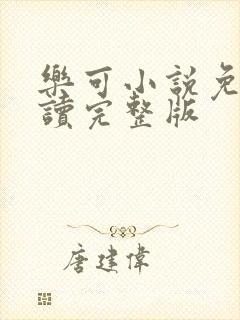 樂可小說免
讀完整版
唐建偉